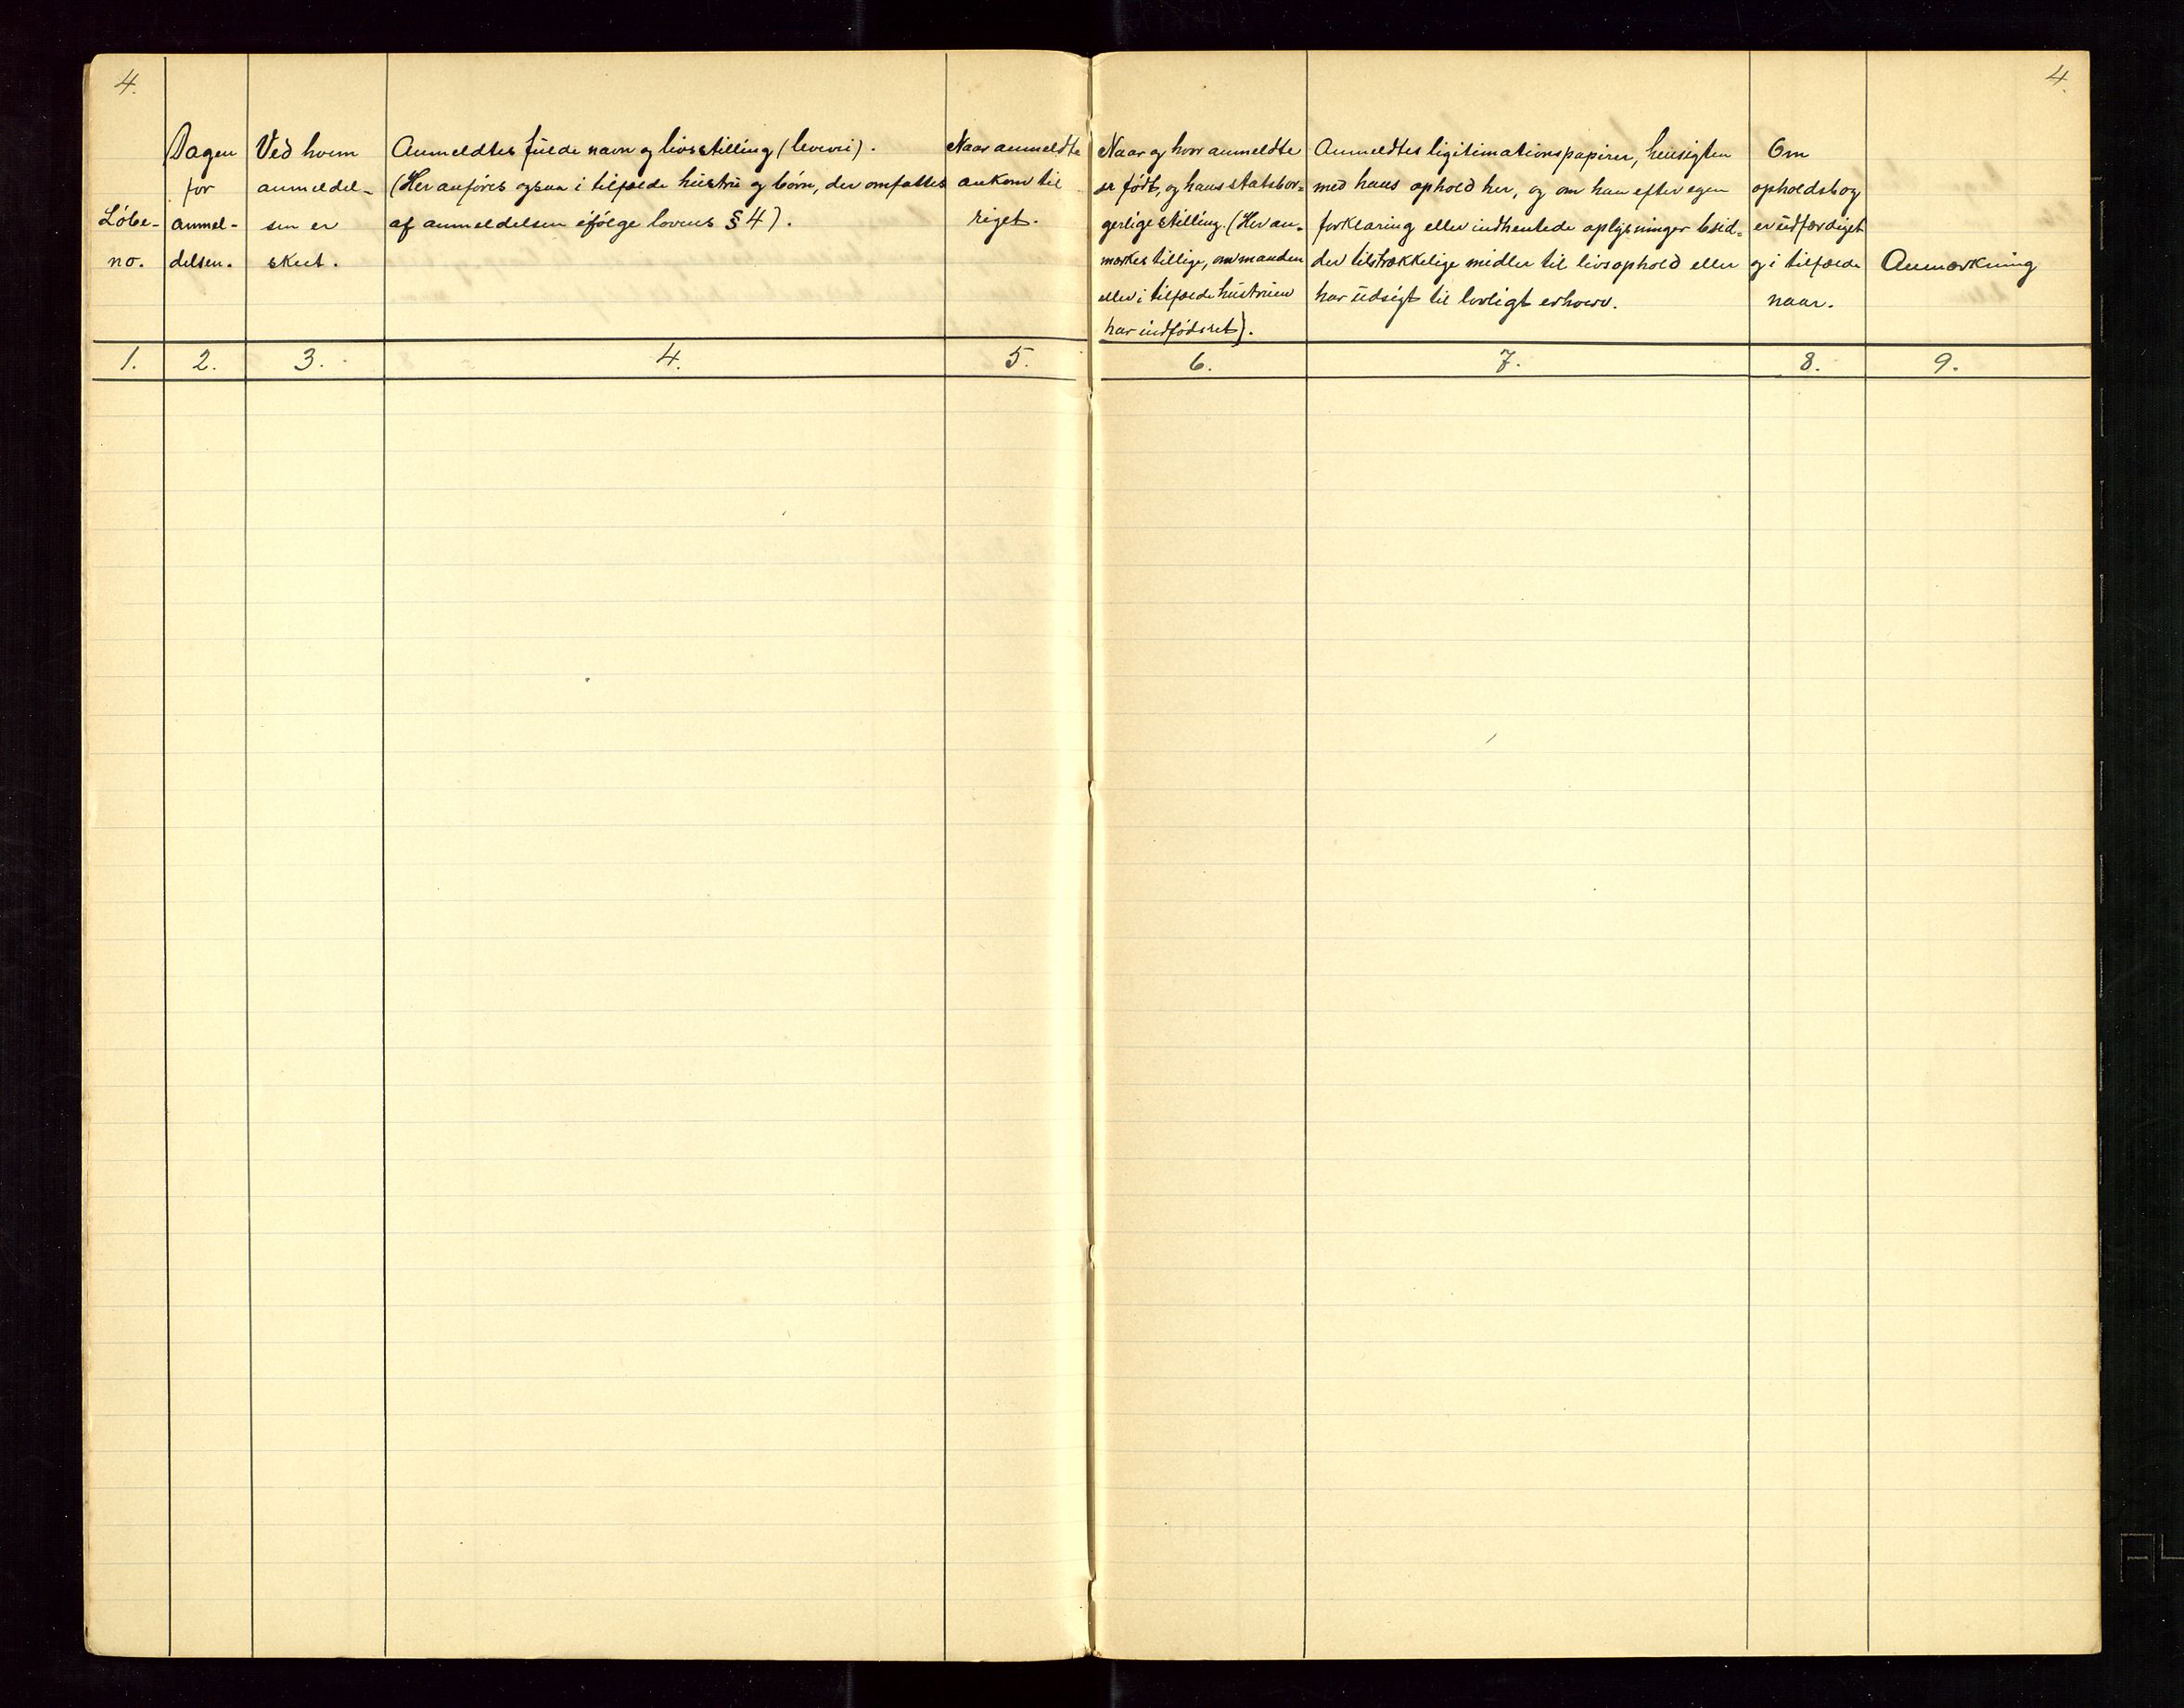 4.
4.
Löbe-
no.
Dagen
for
anmel-
delsen.
Ved hvem
anmeldel-
sen er
skeet.
Anmeldtes fulde navn og livsstilling (levevei).
(Her anføres ogsaa i tilfælde hustru og børn, der omfattes
af anmeldelsen ifølge lovens § 4).
Naar anmeldte
ankom til
riget.
Naar og hvor anmeldte
er født, og hans statsbor-
gerlige stilling. (Her an-
mærkes tillige, om manden
eller i tilfælde hustruen
har indfødsret).
Anmeldtes ligitimationspapirer, hensigten
med hans ophold her, og om han efter egen
forklaring eller indhentede oplysninger besid-
der tilstrækkelige midler til livsophold eller
har udsigt til lovligt erhverv.
Om
opholdsbog
er udfærdiget
og i tilfælde
naar.
Anmærkning
1. 2. 3. 4. 5. 6. 7. 8. 9.